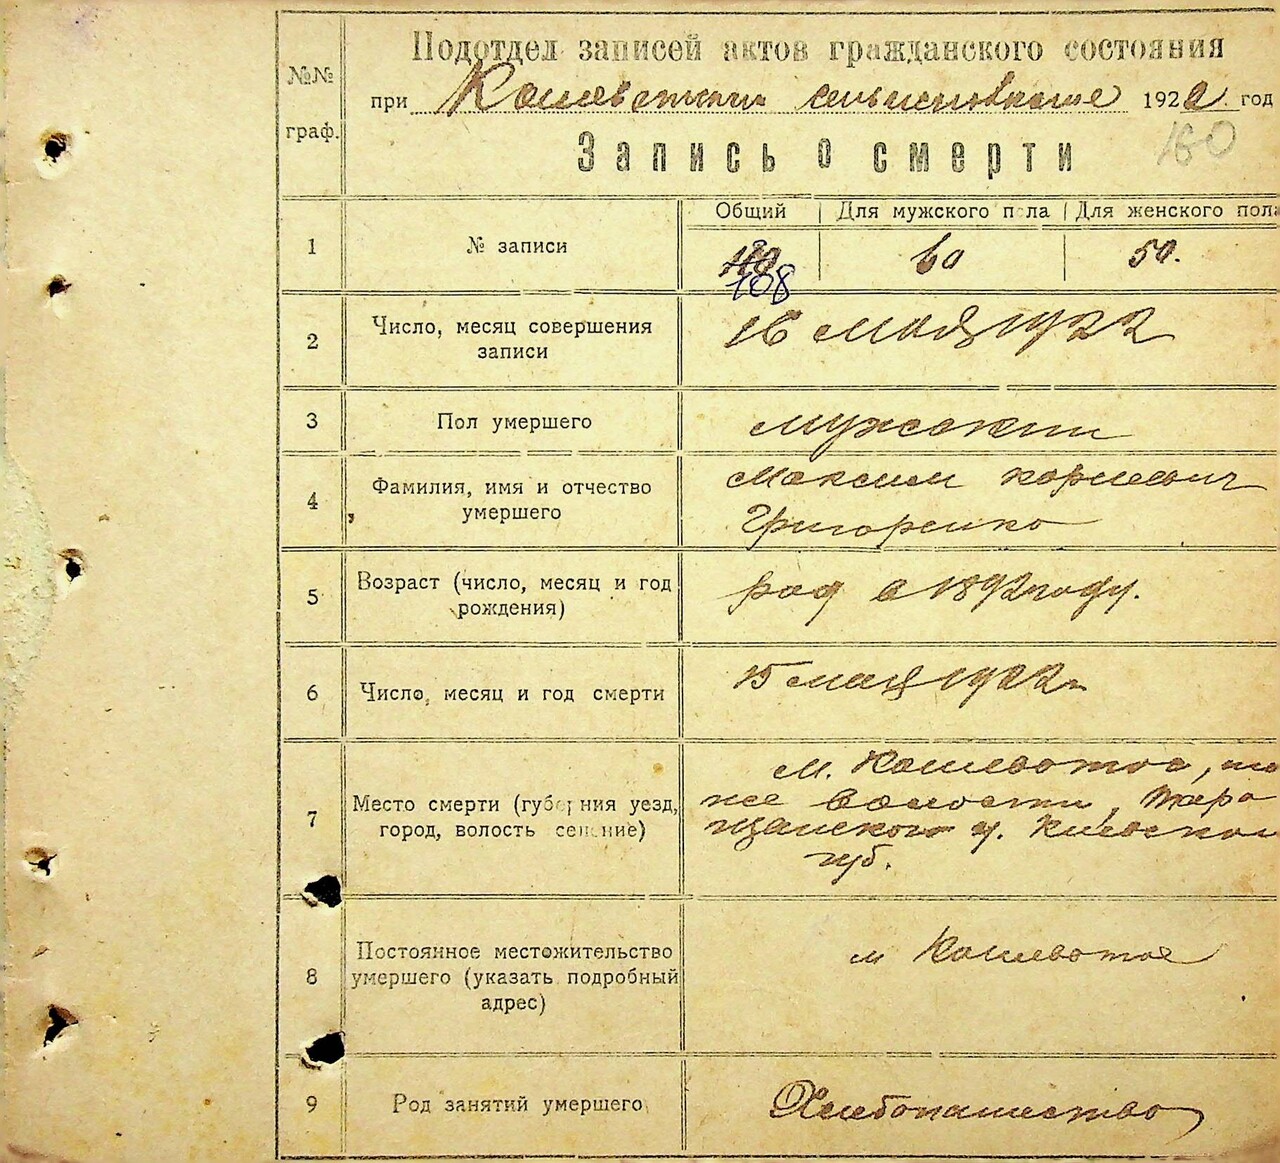 №№ граф.
Подотдел записей актов гражданского состояния
при Кошеватским сельисполкоме 1922 год
160
Запись о смерти
Общий | Для мужского пола | Для женского пола
1 № записи 108 60 50.
2 Число, месяц совершения 16 мая 1922
записи
3 Пол умершего мужский
4 Фамилия, имя и отчество Максим Корнеевич
умершего Григоренко
5 Возраст (число, месяц и год род в 1892 году.
рождения)
6 Число, месяц и год смерти 15 мая 1922 г.
7 Место смерти (губерния уезд, м. Кошеватое, то
город, волость селение) же волости, Тара
щанского у. Киевской
губ.
8 Постоянное местожительство м Кошеватое
умершего (указать подробный
адрес)
9 Род занятий умершего Хлебопашество